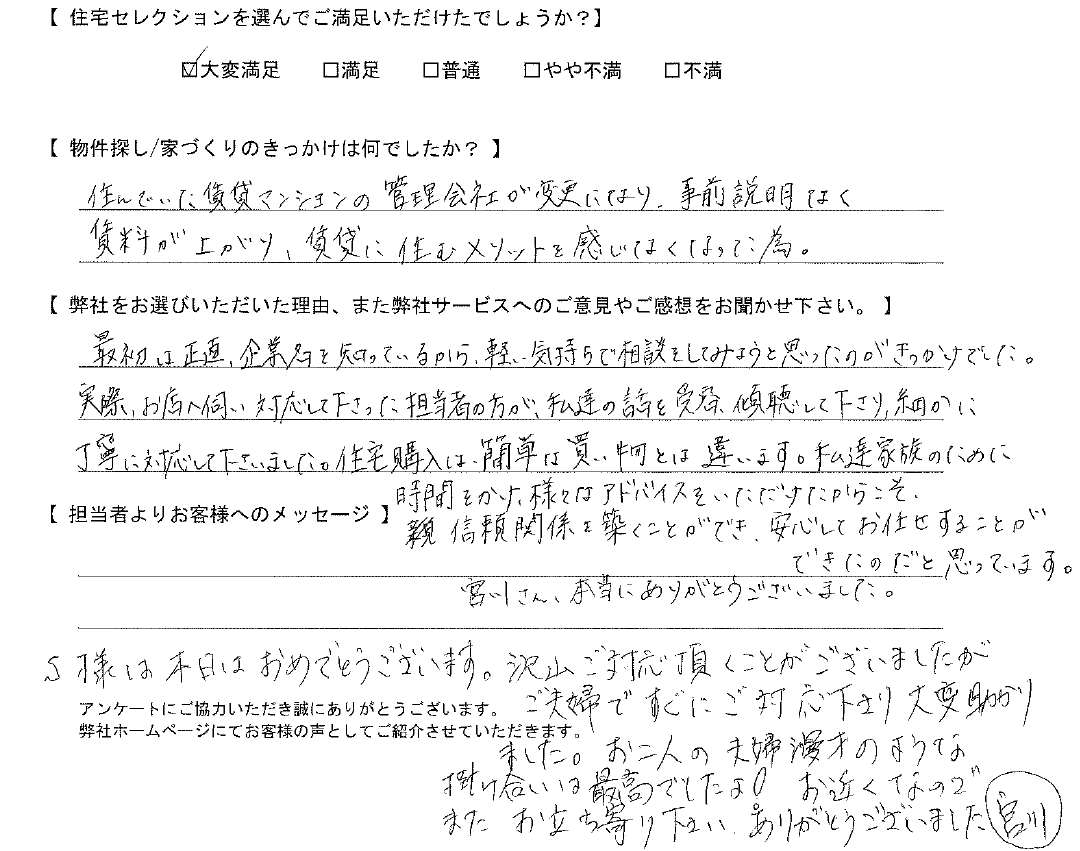 【 住宅セレクションを選んでご満足いただけたでしょうか?】
☑大変満足 □満足 □普通 □やや不満 □不満
【 物件探し/家づくりのきっかけは何でしたか? 】
住んでいた賃貸マンションの管理会社が変更になり、事前説明なく
賃料が上がり、賃貸に住むメリットを感じなくなった為。
【 弊社をお選びいただいた理由、また弊社サービスへのご意見やご感想をお聞かせ下さい。 】
最初は正直、企業名を知っているから、軽い気持ちで相談をしてみようと思ったのがきっかけでした。
実際、お店へ伺い対応して下さった担当者の方が、私達の話を受容、傾聴して下さり、細かに
丁寧に対応して下さいました。住宅購入は、簡単な買い物とは違います。私達家族のために
時間をかけ、様々なアドバイスをいただけたからこそ、
【 担当者よりお客様へのメッセージ 】
信頼関係を築くことができ、安心してお任せすることが
できたのだと思っています。
宮川さん、本当にありがとうございました。
S様は本日はおめでとうございます。沢山ご対応頂くことがございましたが
アンケートにご協力いただき誠にありがとうございます。
ご夫婦ですぐにご対応下さり大変助かり
弊社ホームページにてお客様の声としてご紹介させていただきます。
ました。お二人の夫婦漫才のような
掛け合いは最高でしたよ! お近くなので
また お立ち寄り下さい。ありがとうございました 宮川